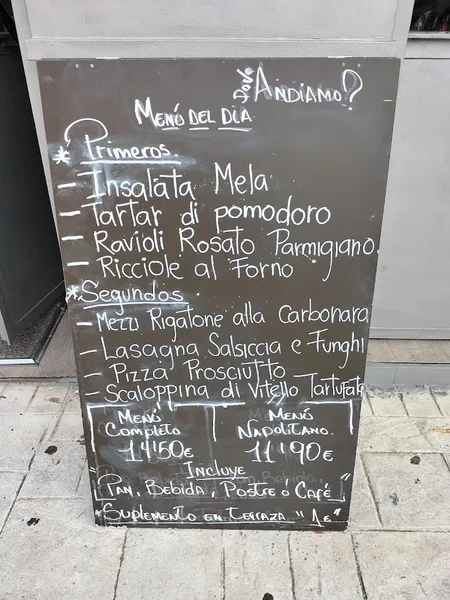 Dove Andiamo?
Menú del día
* Primeros
- Insalata Mela
- Tartar di pomodoro
- Ravioli Rosato Parmigiano.
- Ricciole al Forno
* Segundos
- Mezzi Rigatone alla Carbonara
- Lasagna Salsiccia e Funghi
- Pizza Prosciutto
- Scaloppina di Vitello Tartufata
Menú Completo 14'50€
Menú Napolitano. 11'90€
Incluye
"Pan, Bebida, Postre ó Café"
*Suplemento en terraza "1€"